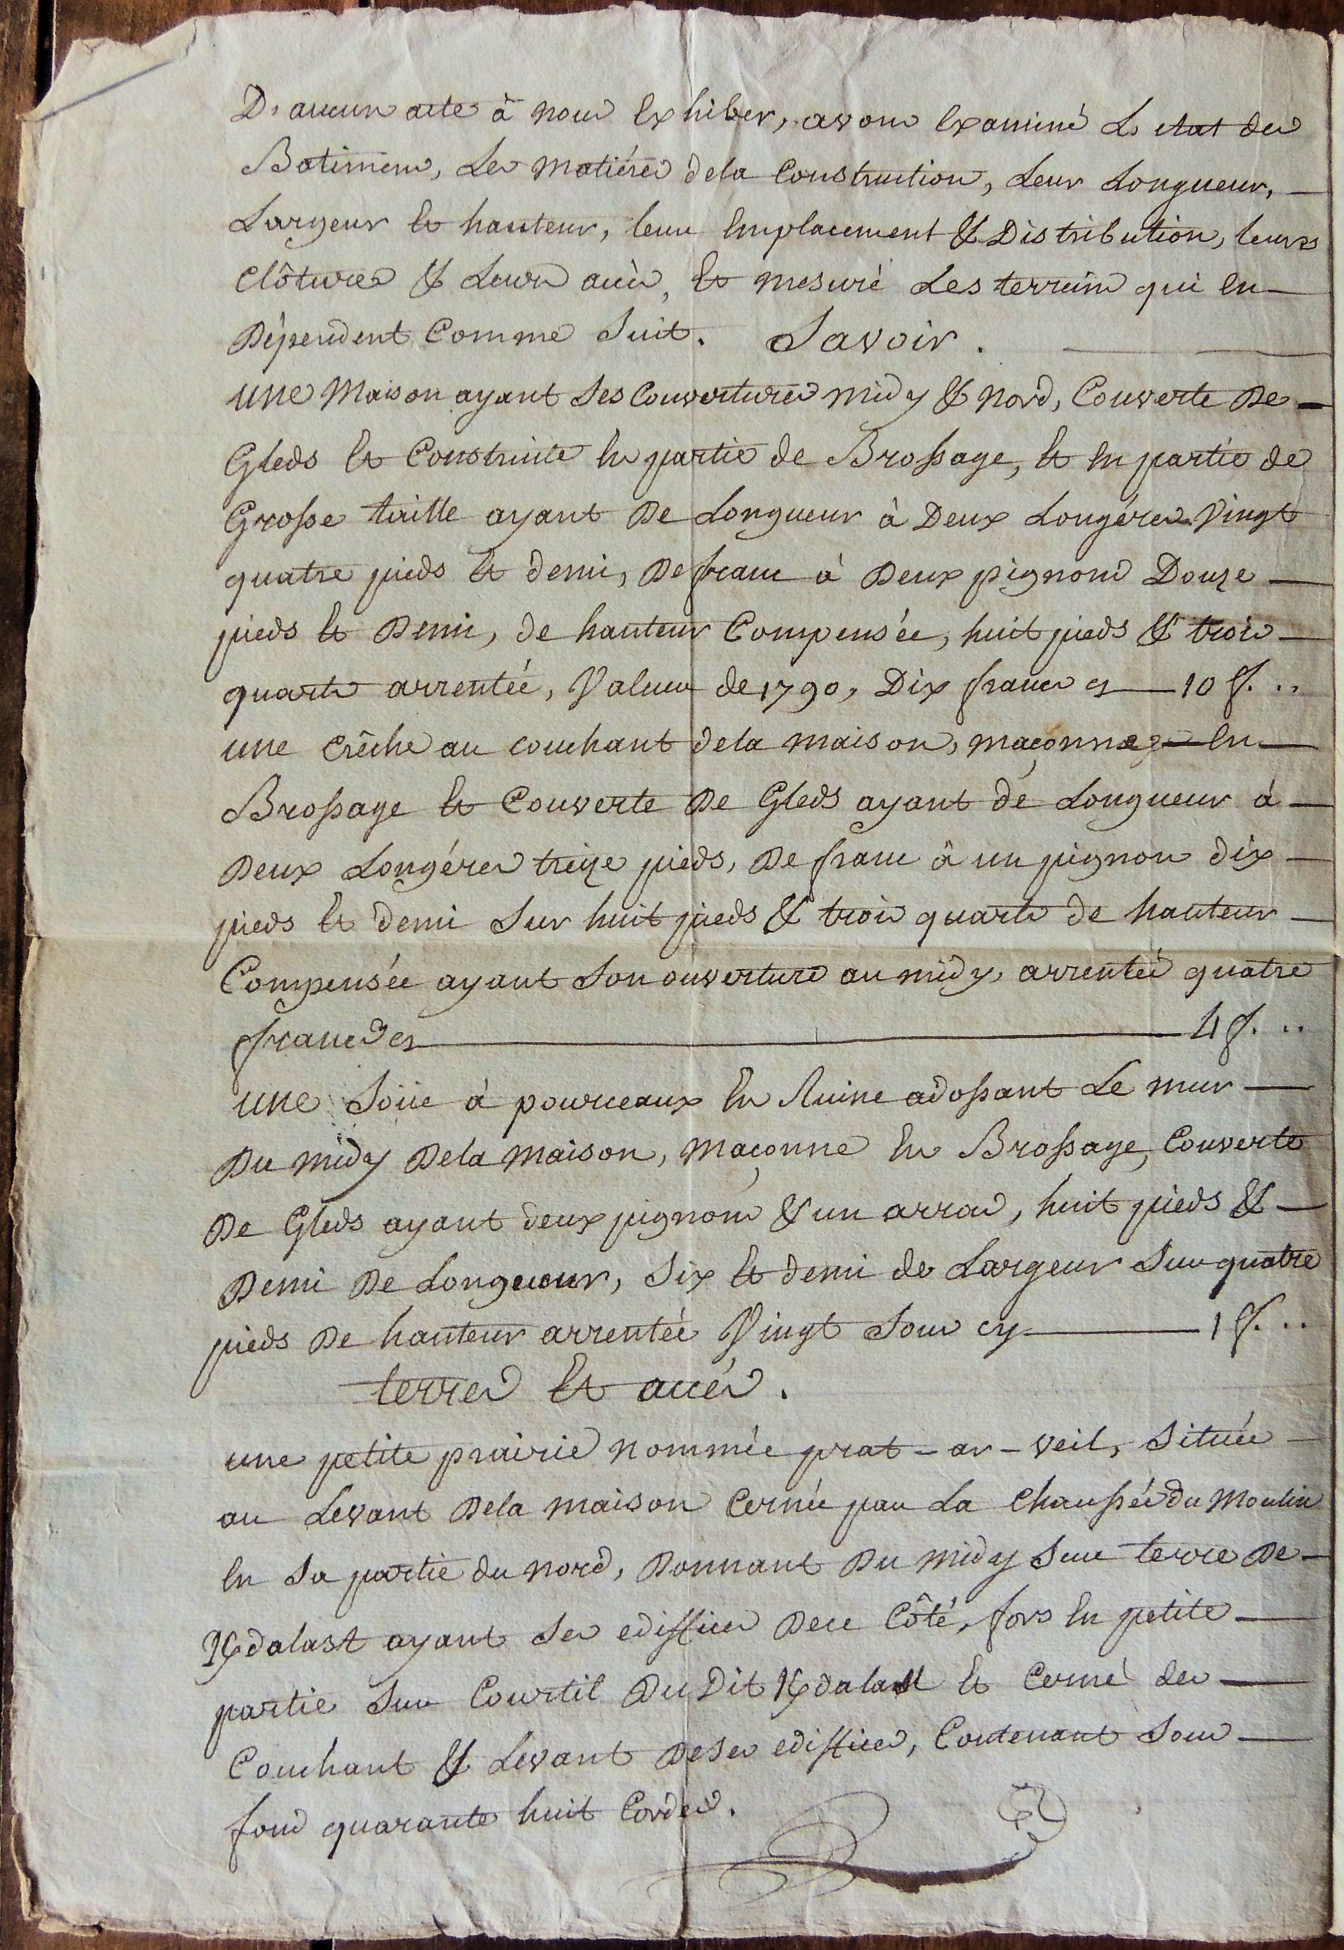 D'aucun acte à nous Exhiber, avons Examiné L'etat des
Batimens, Les matiéres dela Construction, Leur Longueur,
Largeur Et hauteur, leur Emplacement & Distribution, leurs
Clôtures & Leurs accès, Et mesuré Les terreins qui en
Dépendent Comme Suit. Savoir.
une Maison ayant Ses Couvertures midy & Nord, Couverte De
Gleds Et Construite En partie de Brossage, Et En partie de
Grosse taille ayant De Longueur à Deux Longéres Vingt
quatre pieds Et demi, De franc à Deux pignons Douze
pieds Et Demi, de hauteur Compensée, huit pieds & trois
quarts arrentée, Valeur de 1790, Dix francs cy 10 f. ..
une crêche au couchant dela maison, maçonnée En
Brossage Et Couverte De Gleds ayant de Longueur à
Deux Longéres treize pieds, De franc à un pignon dix
pieds Et demi Sur huit pieds & trois quarts de hauteur
Compensée ayant Son ouverture au midy, arrentée quatre
francs cy 4 f. ..
une Soüe à pourceaux En Ruine adossant Le mur
Du midy Dela maison, maçonne En Brossage, Couverte
De Gleds ayant deux pignons & un arras, huit pieds &
Demi De Longueur, Six Et demi de Largeur Sur quatre
pieds De hauteur arrentée Vingt Sous cy 1 f. ..
terres Et accès.
une petite prairie nommée prat-ar-veil, Située
au Levant Dela maison Cernée par La Chaussée du Moulin
En Sa partie du nord, Donnant Du midy Sur terre De
K/dalast ayant Ses ediffices Dece Côté, fors En petite
partie Sur Courtil Du Dit K/dalast Et Cerné des
Couchant & Levant De Ses ediffices, Contenant Sous
fond quarante huit Cordes.